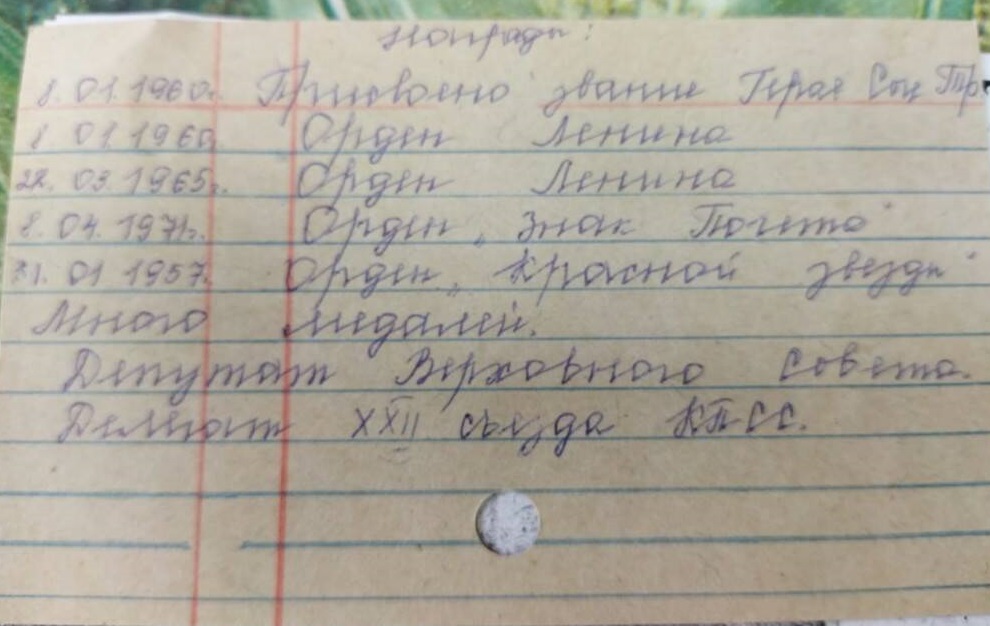 Награды:
8.01.1960г. Присвоено звание Героя Соц Тр
8 01.1960 Орден Ленина
22. 03.1965г. Орден Ленина
8. 04. 1971г. Орден „Знак Почета"
31. 01 1957. Орден „Красной звезды"
Много медалей.
Депутат Верховного Совета.
Делегат XXII съезда КПСС.